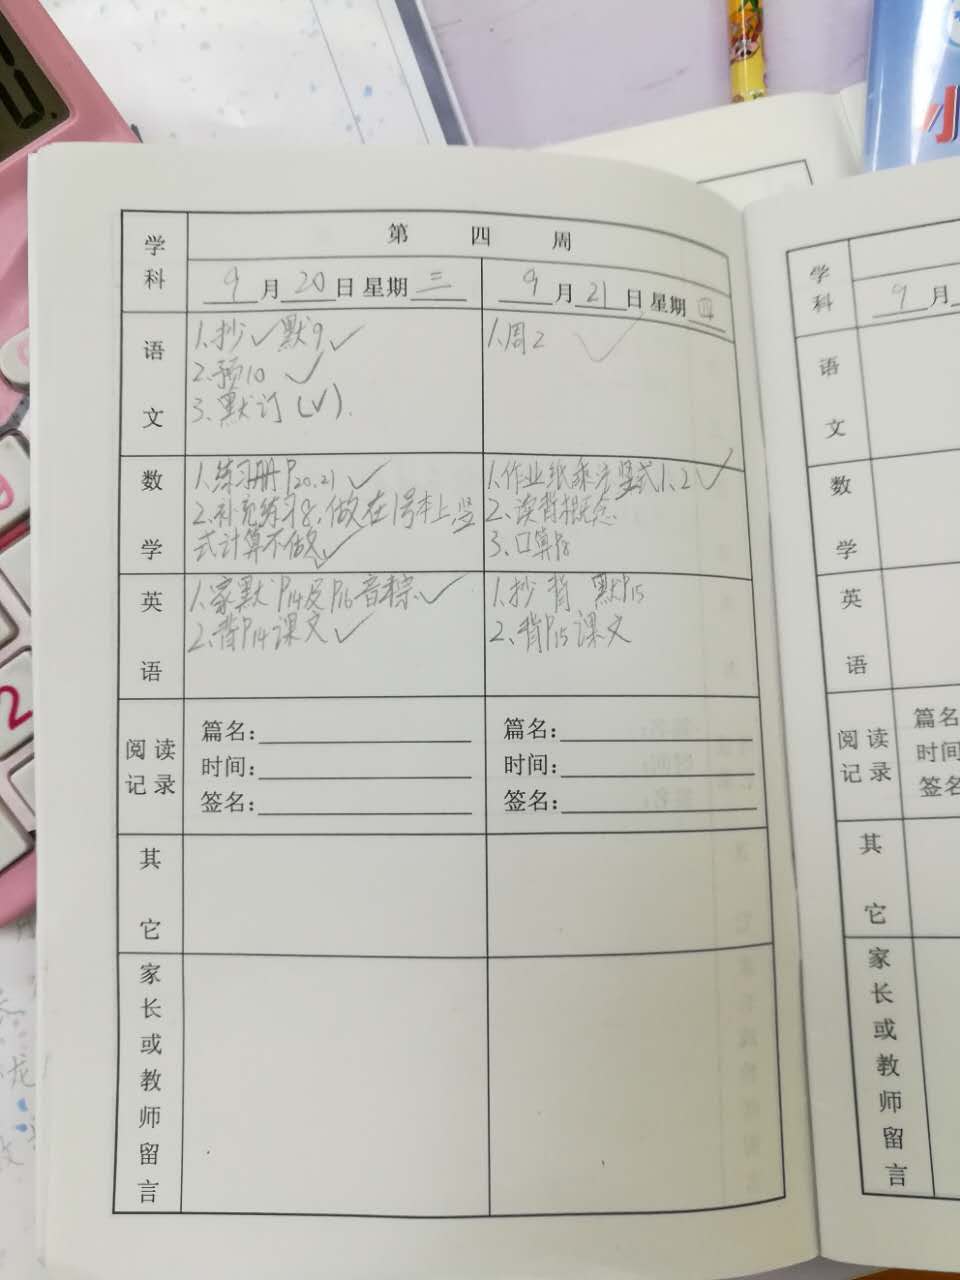 小
学科
第 四 周
9月20日 星期三
9月21日 星期四
语文
1.抄✓默9✓
2.预10 ✓
3.默订(✓).
1.周2 ✓
数学
1.练习册P20.21 ✓
2.补充练习8,做在1号本上,竖
式计算不做✓
1.作业纸乘法竖式1、2✓
2.读背概念
3.口算P8
英语
1.家默P14及P16音标✓
2.背P14课文✓
1.抄 背 默P15
2.背P15课文
阅读记录
篇名:
时间:
签名:
篇名:
时间:
签名:
其它
家长或教师留言
学科
9月
语文
数学
英语
阅读记录
篇名
时间
签名
其它
家长或教师留言
2